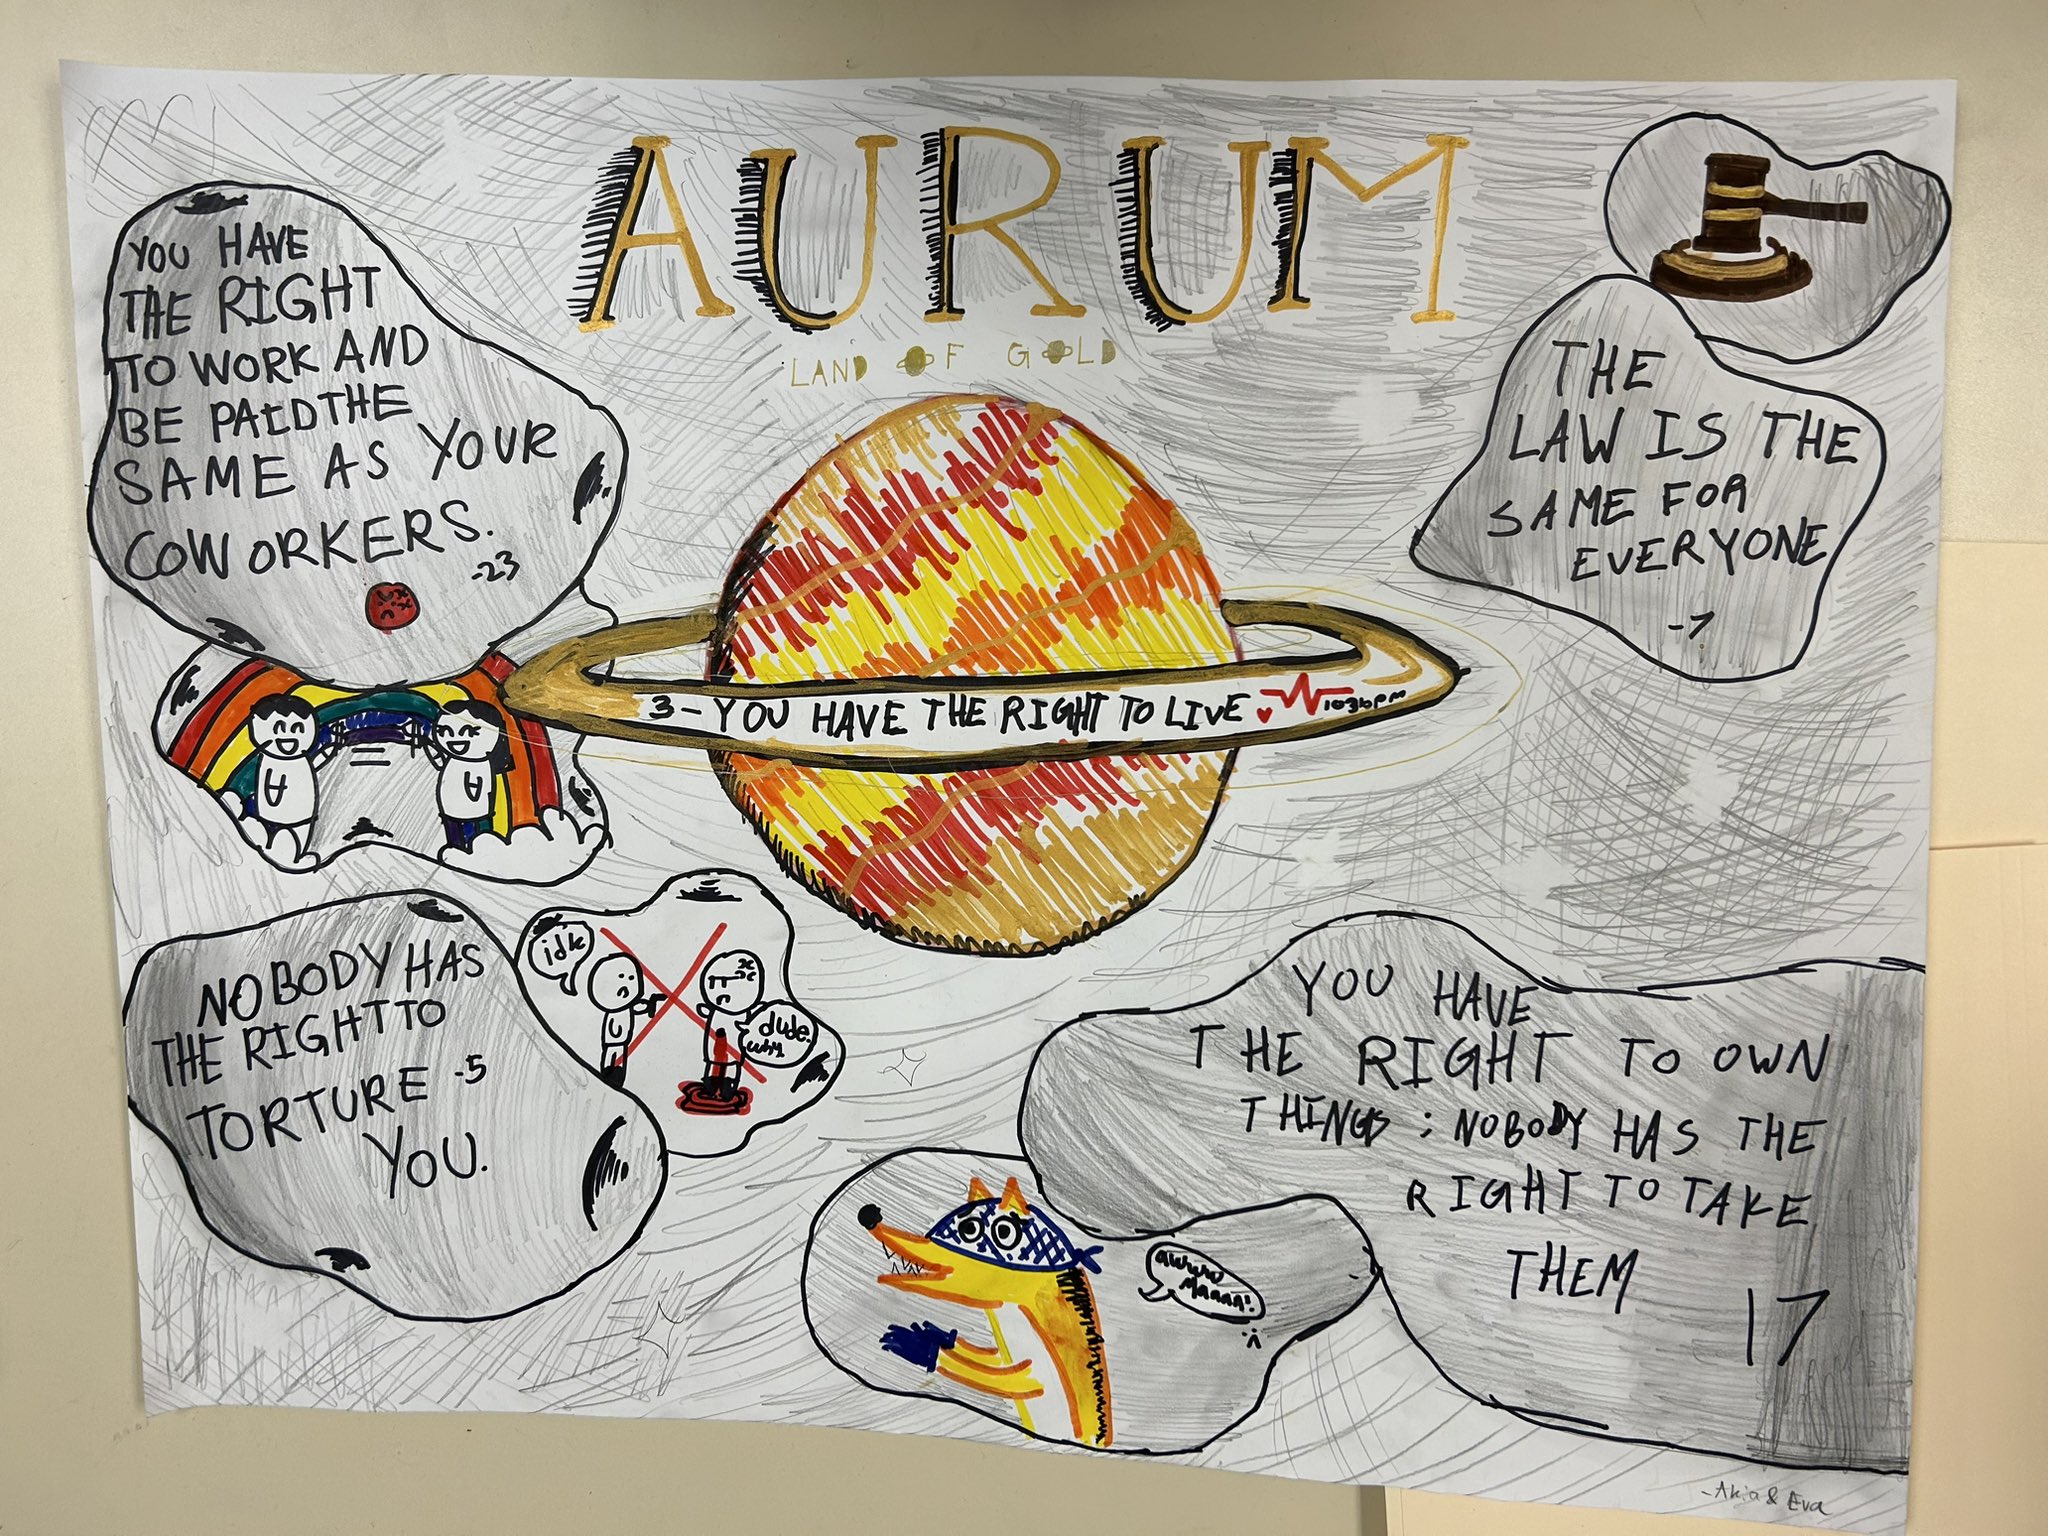 AURUM
LAND OF GOLD
YOU HAVE
THE RIGHT
TO WORK AND
BE PAID THE
SAME AS YOUR
COWORKERS.
-23
THE
LAW IS THE
SAME FOR
EVERYONE
-7
3-YOU HAVE THE RIGHT TO LIVE
NOBODY HAS
THE RIGHT TO
TORTURE -5
YOU.
idk
dude.
why
YOU HAVE
THE RIGHT TO OWN
THINGS ; NOBODY HAS THE
RIGHT TO TAKE
THEM
17
awww
Maaaa!
-Akia & Eva